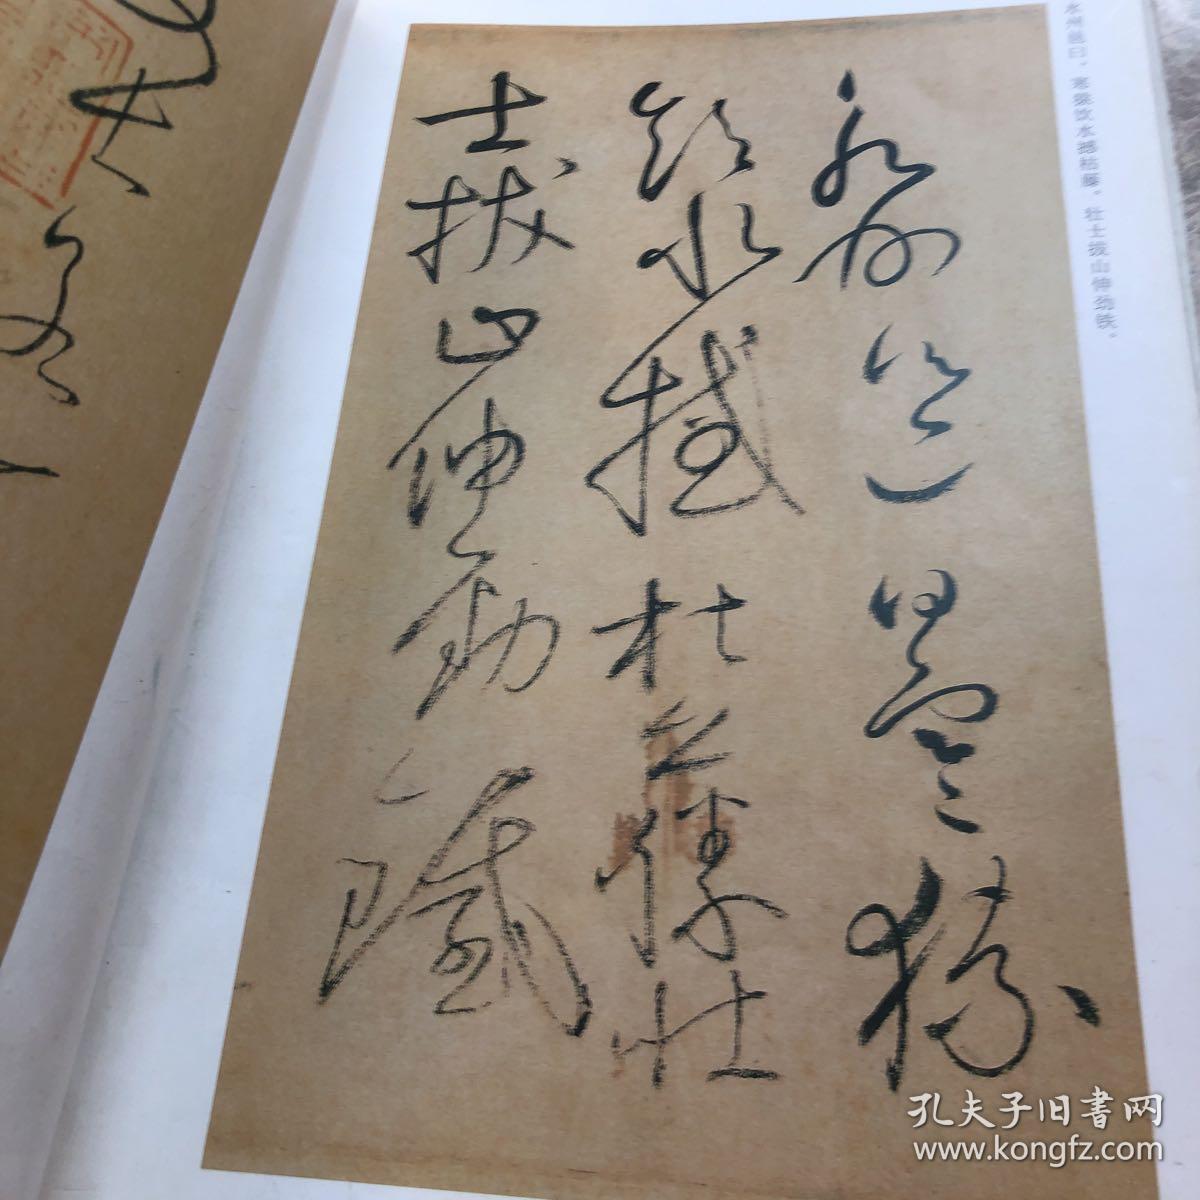 永州邕曰寒猿
飲水撼枯藤壯
士拔山伸勁鐵
永州邕曰，寒猿饮水撼枯藤，壮士拔山伸劲铁。
孔夫子旧书网
www.kongfz.com